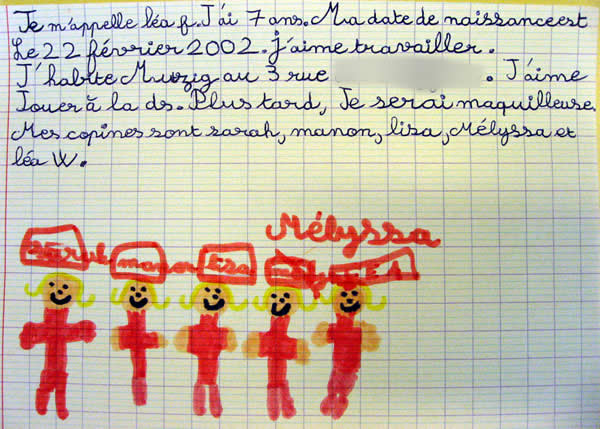 Je m'appelle léa f. J'ai 7 ans. Ma date de naissance est
Le 22 février 2002. j'aime travailler.
J'habite Mutzig au 3 rue . J'aime
Jouer à la ds. Plus tard, Je serai maquilleuse.
Mes copines sont sarah, manon, lisa, Mélyssa et
léa W.
Mélyssa
sarah manon lisa LÉA